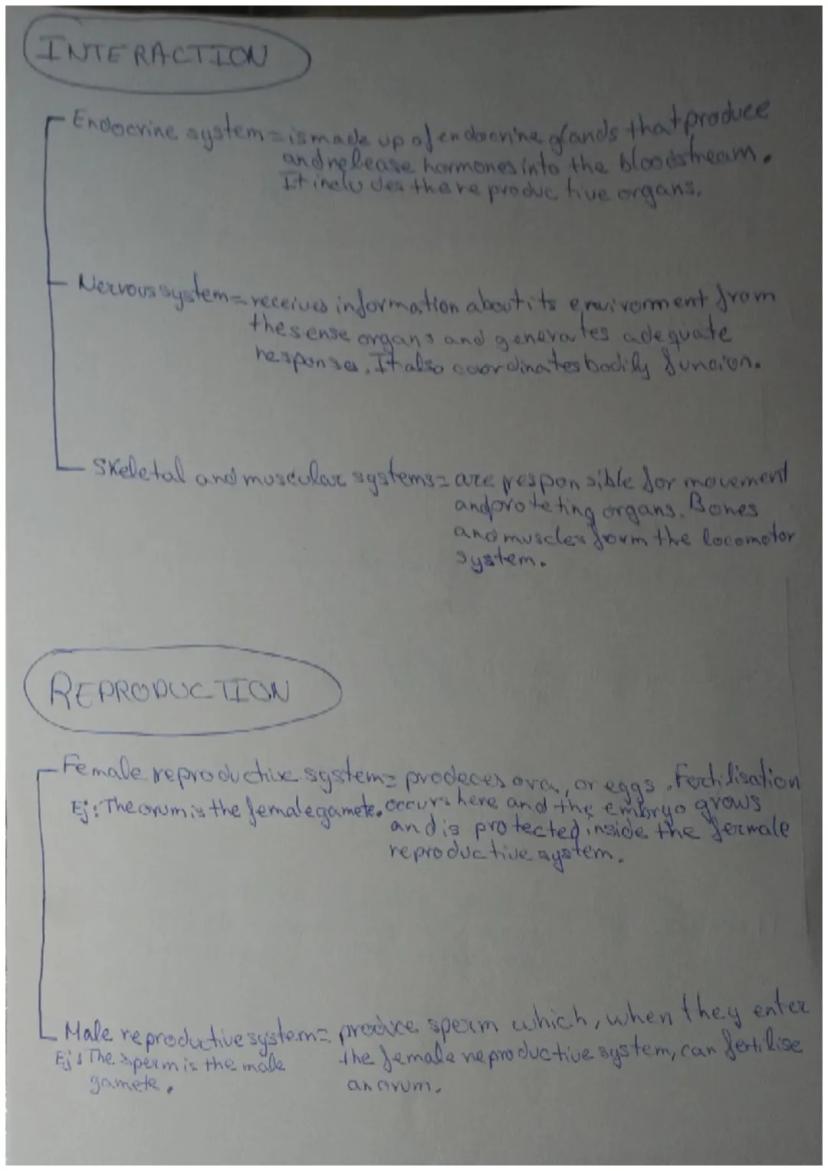 INTERACTION
Endocrine system = is made up of endocrine glands that produce
and release hormones into the bloodstream.
It includes the reproductive organs.
Nervous system = receives information about its enviroment from
the sense organs and generates adequate
responses. It also coordinates bodily funcion.
Skeletal and muscular systems = are responsible for movement
and proteting organs. Bones
and muscles form the locomotor
system.
REPRODUCTION
Female reproductive system = prodeces ova, or eggs. Fertilisation
Ej: The ovum is the female gamete. occurs here and the embryo grows
and is protected inside the fermale
reproductive system.
Male reproductive system = produce sperm which, when they enter
Ej: The sperm is the male the female reproductive system, can fertilise
gamete. an ovum.